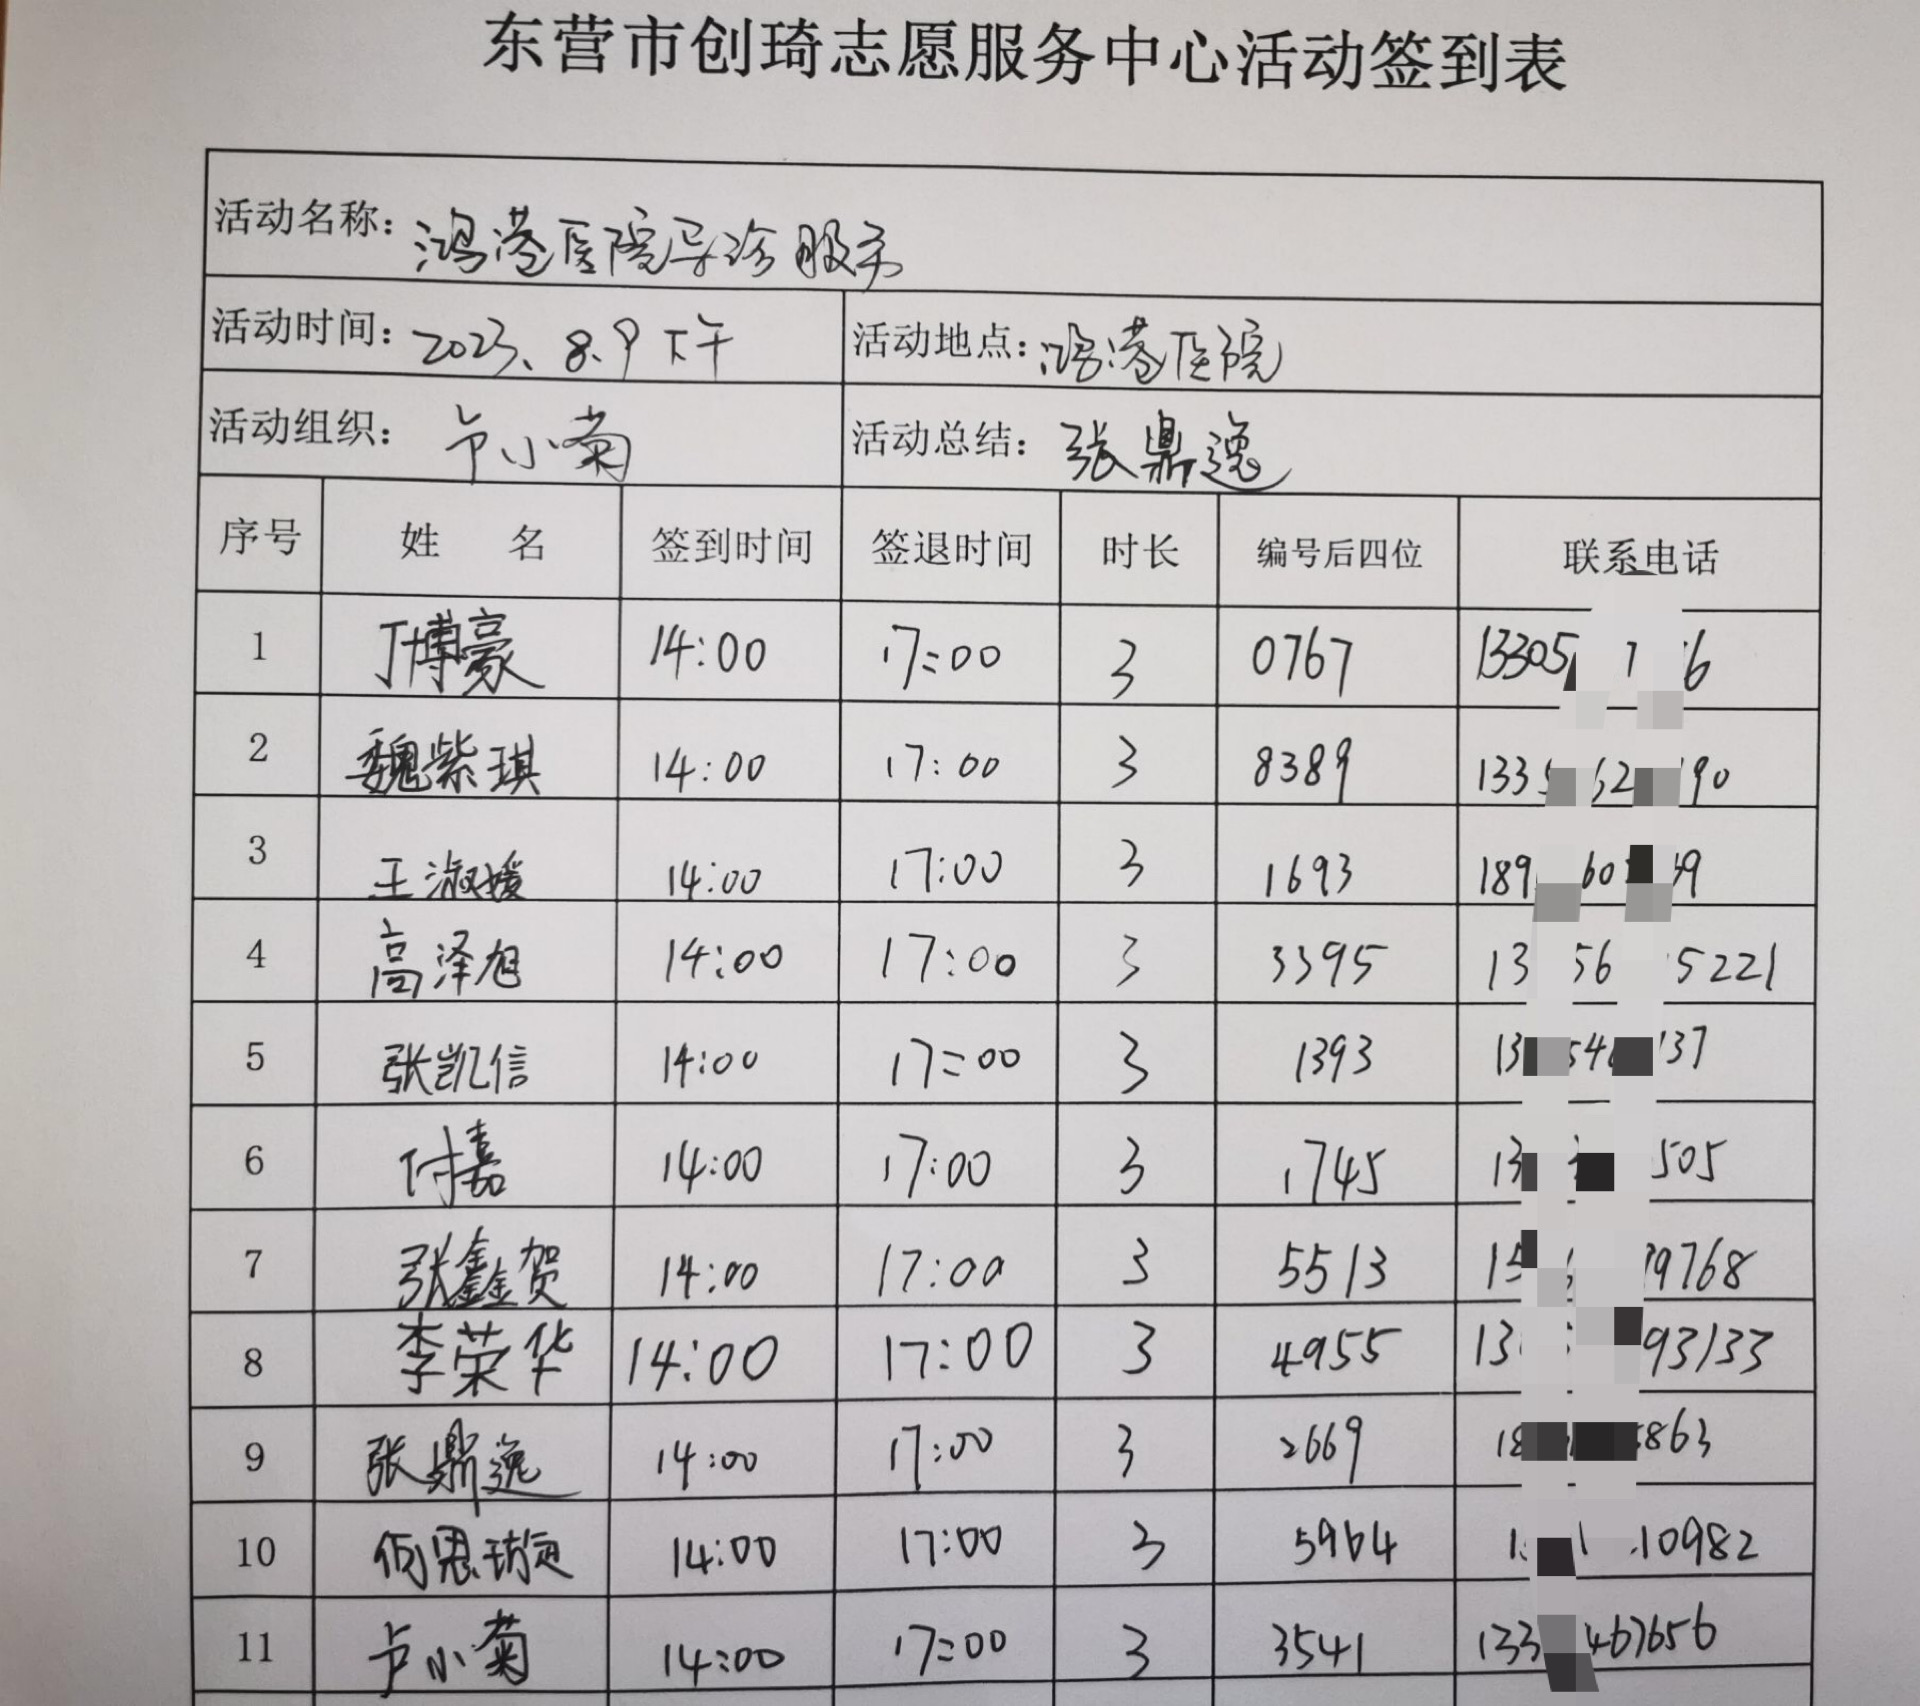 东营市创琦志愿服务中心活动签到表
活动名称：鸿港医院导诊服务
活动时间：2023、8、9 下午 活动地点：鸿港医院
活动组织：卢小菊 活动总结：张鼎逸
序号 姓 名 签到时间 签退时间 时长 编号后四位 联系电话
1 丁博豪 14:00 17:00 3 0767 13305 7 6
2 魏紫琪 14:00 17:00 3 8389 133 62 90
3 王淑媛 14:00 17:00 3 1693 189 60 9
4 高泽旭 14:00 17:00 3 3395 13 56 5221
5 张凯信 14:00 17:00 3 1393 13 54 137
6 付嘉 14:00 17:00 3 1745 13 505
7 张鑫贺 14:00 17:00 3 5513 15 9768
8 李荣华 14:00 17:00 3 4955 13 93133
9 张鼎逸 14:00 17:00 3 2669 18 863
10 何思璇 14:00 17:00 3 5964 1 10982
11 卢小菊 14:00 17:00 3 3541 133 467656